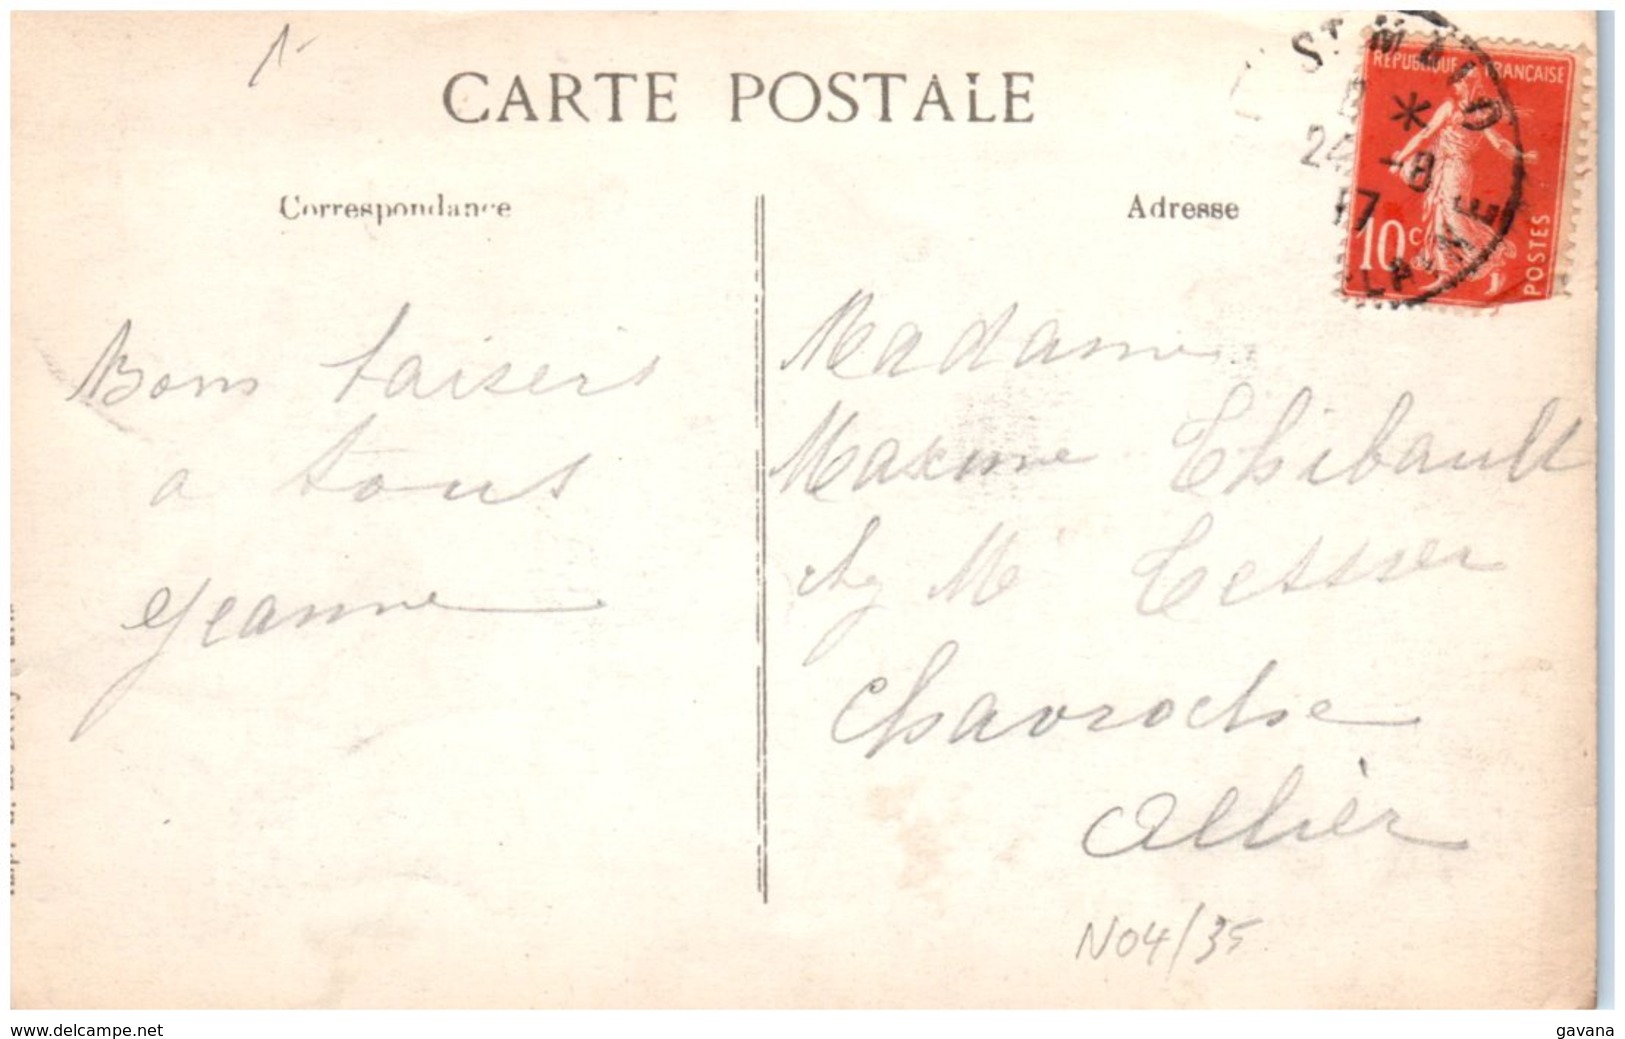 CARTE POSTALE
Correspondance
Adresse
ST M
24 -8
17
REPUBLIQUE FRANÇAISE
10c
POSTES
Bons baisers
a tous
Jeanne
Madame
Maxime Thibault
chez Mr Tessier
Chavroche
Allier
N04/35
www.delcampe.net
gavana